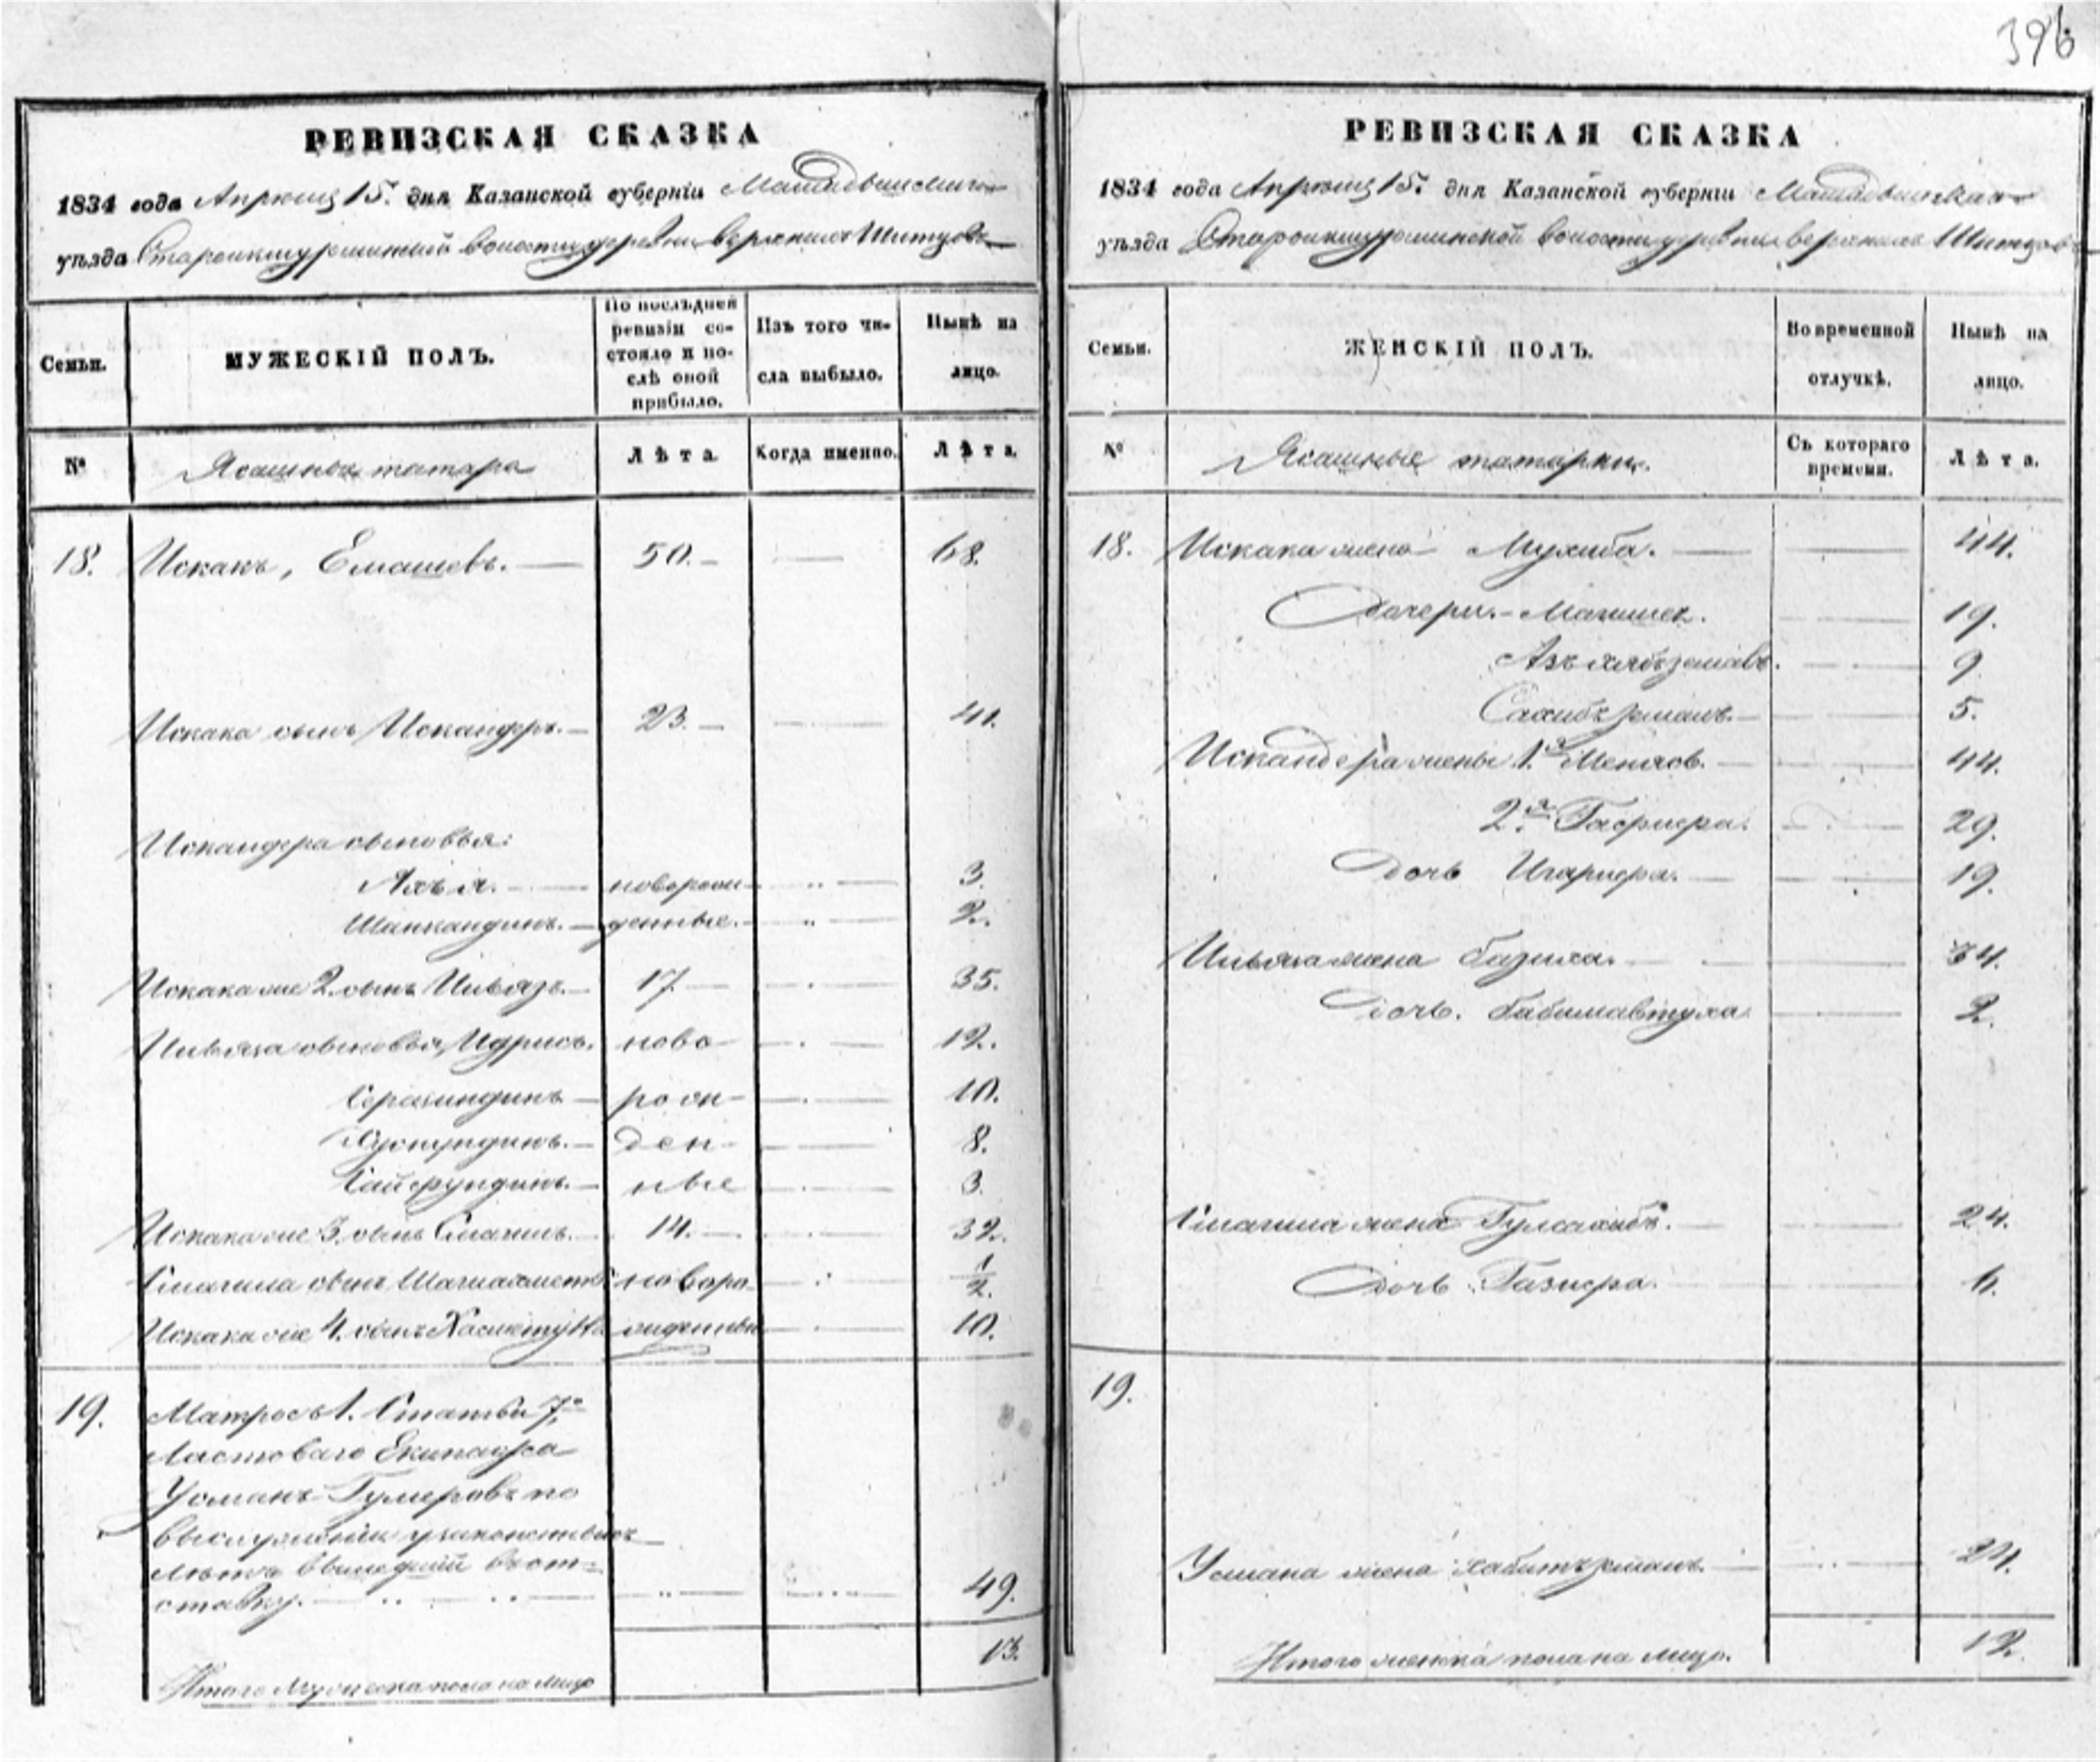 396
РЕВИЗСКАЯ СКАЗКА
1834 года Апреля 15. дня Казанской губерніи Мамадышскаго
уѣзда Староикшурминской волости деревни верхнихъ Шитцовъ
Семьи.
МУЖЕСКІЙ ПОЛЪ.
По послѣдней ревизіи состояло и послѣ оной прибыло.
Изъ того числа выбыло.
Нынѣ на лицо.
№
Ясашные татара
Лѣта.
Когда именно.
Лѣта.
18. Искакъ, Емашевъ. 50. 68.
Искака сынъ Искандеръ. 23. 41.
Искандера сыновья:
Яхъя. новорож 3.
денные. 2.
Искака же 2. сынъ Ильязъ. 17. 35.
Ильяза сыновья, Идрисъ. ново 12.
рож 10.
ден 8.
ные 3.
Искака же 3. сынъ Смагилъ. 14. 32.
Смагила сынъ Шагиахметъ новоро 1/2.
Искака же 4. сынъ жденные 10.
19. Матросъ 1. Статьи 7го
Ластоваго Екипажа
Усманъ Гумеровъ по
выслуженіи узаконенныхъ
лѣтъ вышедшій въ от=
ставку. 49.
13.
Итого Мужеска пола на лицо
РЕВИЗСКАЯ СКАЗКА
1834 года Апреля 15. дня Казанской губерніи Мамадышскаго
уѣзда Староикшурминской волости деревни верхнихъ Шитцовъ
Семьи.
ЖЕНСКІЙ ПОЛЪ.
Во временной отлучкѣ.
Нынѣ на лицо.
№
Ясашные татарки.
Съ котораго времени.
Лѣта.
18. Искака жена Мухиба. 44.
Дочери. 19.
9.
Сахибъ земалъ. 5.
Искандера жены 1.я 44.
2.я 29.
Дочь 19.
Ильяза жена Базиха. 34.
Дочь. 2.
Смагила жена Гулсахибъ. 24.
Дочь Газизра. 6.
19.
Усмана жена 24.
Итого женска пола на лицо. 12.